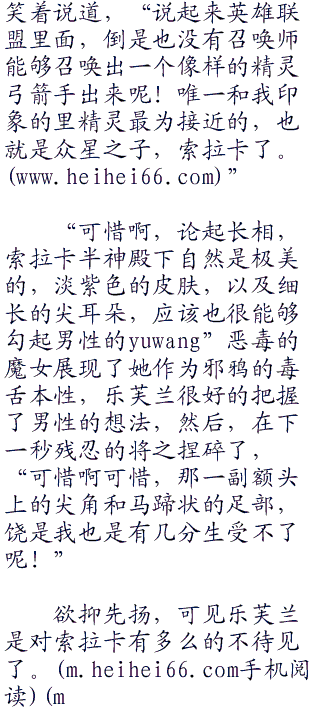 笑着说道，“说起来英雄联
盟里面，倒是也没有召唤师
能够召唤出一个像样的精灵
弓箭手出来呢！唯一和我印
象的里精灵最为接近的，也
就是众星之子，索拉卡了。
(www.heihei66.com)”
“可惜啊，论起长相，
索拉卡半神殿下自然是极美
的，淡紫色的皮肤，以及细
长的尖耳朵，应该也很能够
勾起男性的yuwang”恶毒的
魔女展现了她作为邪鸦的毒
舌本性，乐芙兰很好的把握
了男性的想法，然后，在下
一秒残忍的将之捏碎了，
“可惜啊可惜，那一副额头
上的尖角和马蹄状的足部，
饶是我也是有几分生受不了
呢！”
欲抑先扬，可见乐芙兰
是对索拉卡有多么的不待见
了。(m.heihei66.com手机阅
读)(m